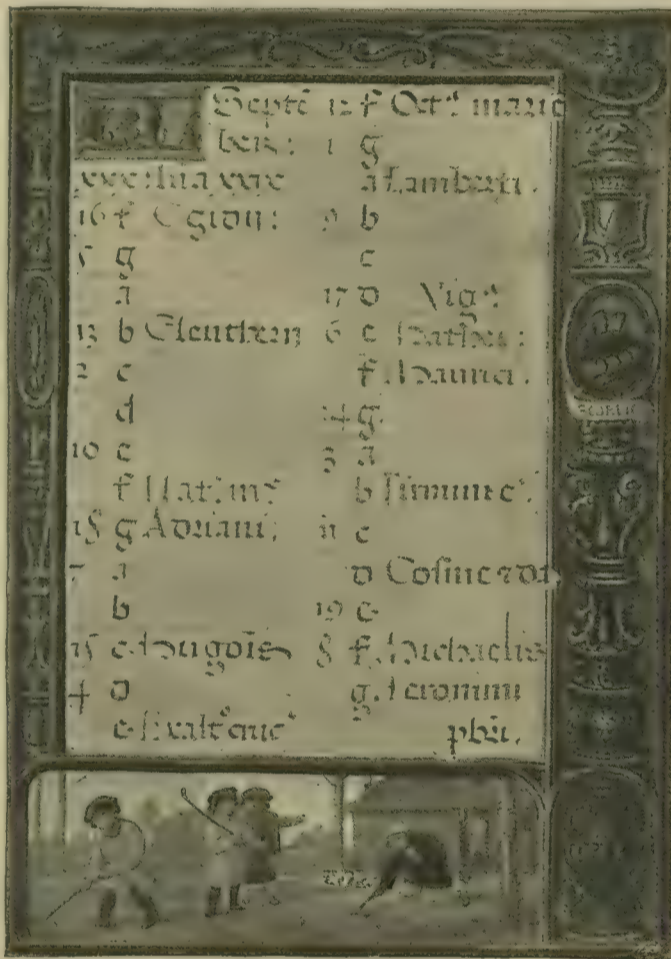 KL Septē
ber:
xxx: lūa xxix
16 f Egidii:
5 g
A
13 b Eleutherii
2 c
d
10 e
f Nat: mᵉ
18 g Adriani:
7 A
b
15 c
4 d
e Exalt° cruc°
12 f Oct° marie
1 g
A Lamberti.
9 b
c
17 d Vig°
6 e Mathei:
f Maurici.
14 g
3 A
b Firmini e°
11 c
d Cosme ⁊ da
19 e
8 f Michaelis
g Jeronimi
pbri.